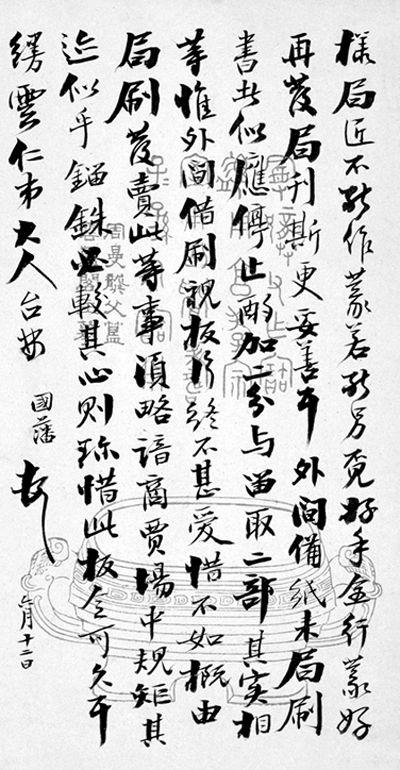 樣局匠不能作篆若能另覓好手全行篆好
再發局刊斯更妥善耳外間備紙來局刷
書此似應停止酌加二分与留取二部其實相
等惟外間借刷視板片終不甚愛惜不如概由
局刷發賣此等事須略諳商賈場中規矩其
迹似乎錙銖必較其心則珍惜此板令可久耳
縵雲仁弟大人台安 國藩 頓
六月十二日